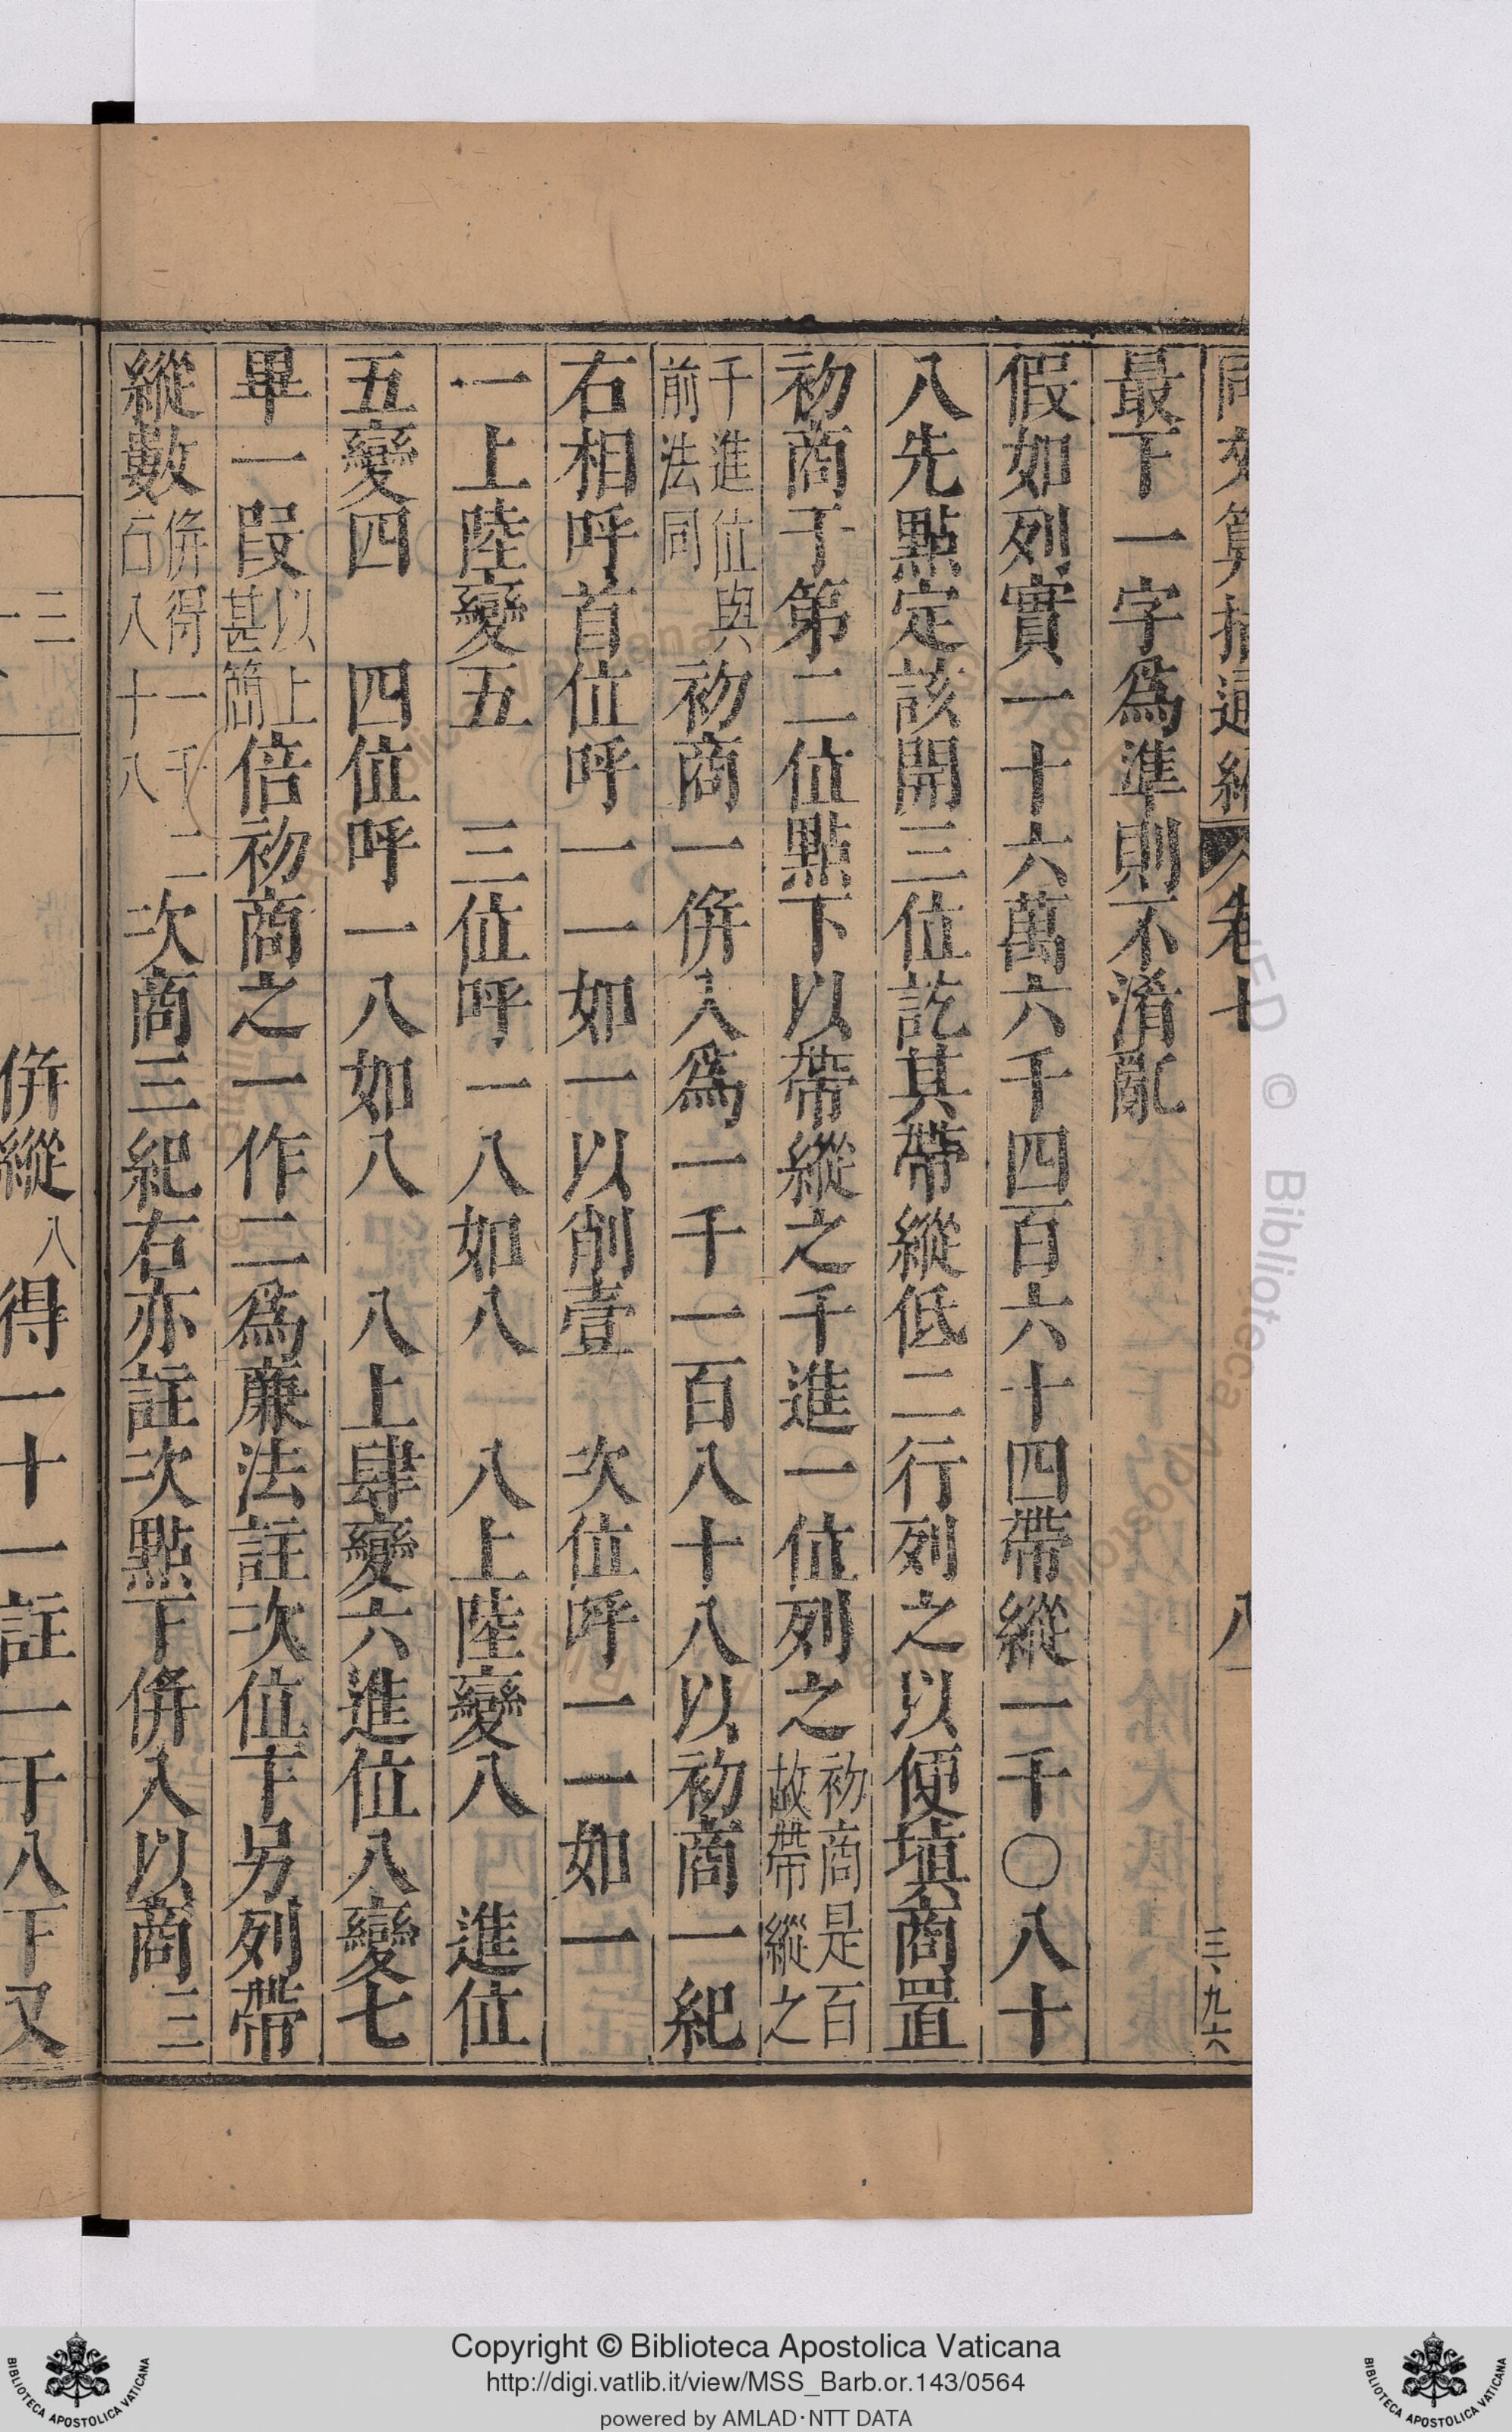 最下一字爲準則不淆亂
假如列實一十六萬六千四百六十四帶縱一千〇八十
八先點定該開三位訖其帶縱低二行列之以便塡商置
初商于第二位點下以帶縱之千進一位列之初商是百故帶縱之
千進位與前法同初商一倂入爲一千一百八十八以初商一紀
右相呼首位呼一一如一以削壹次位呼一一如一
一上陸變五三位呼一八如八八上陸變八進位
五變四四位呼一八如八八上肆變六進位八變七
畢一叚以上甚簡倍初商之一作二爲廉法註次位下另列帶
縱數倂得一千二百八十八次商三紀右亦註次點下倂入以商三
三
一
倂縱八得一十一註一于八下又
卷七
八
三、九六
Copyright © Biblioteca Apostolica Vaticana
http://digi.vatlib.it/view/MSS_Barb.or.143/0564
powered by AMLAD·NTT DATA
BIBLIOTECA APOSTOLICA VATICANA
BIBLIOTECA APOSTOLICA VATICANA